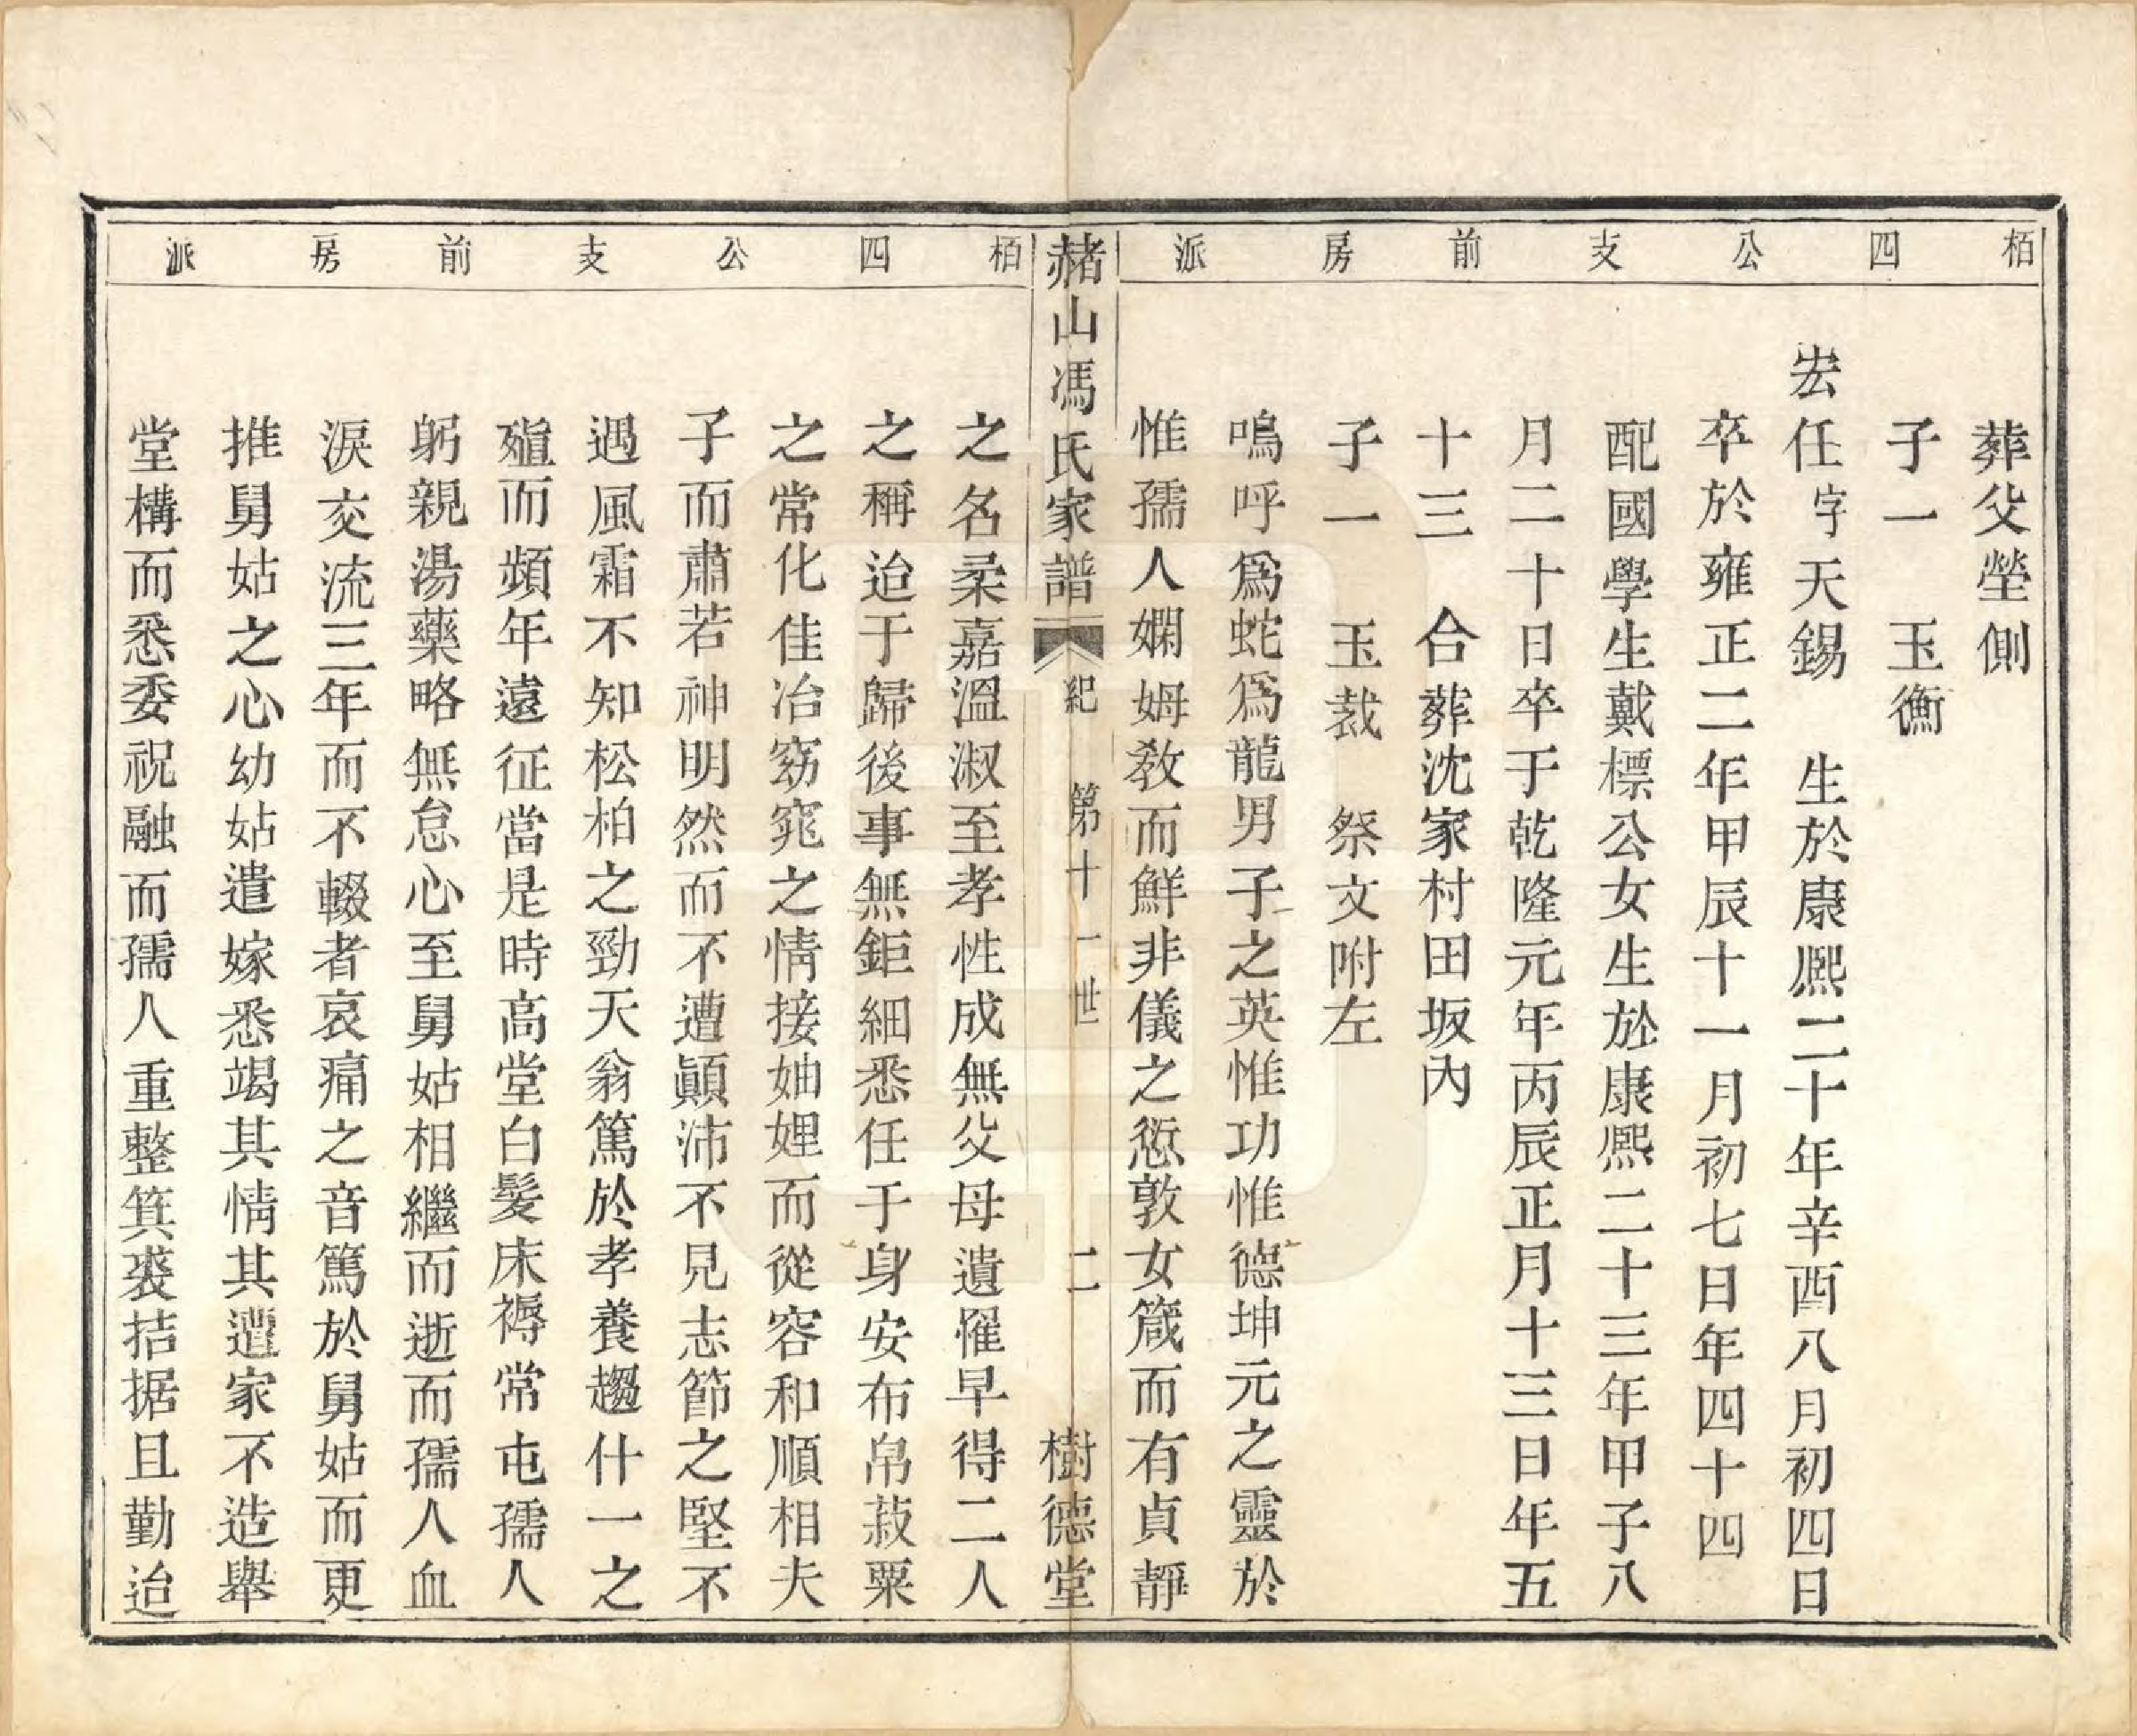 栢四公支前房派
葬父塋側
子一　玉衡
宏任字天錫　生於康熙二十年辛酉八月初四日
卒於雍正二年甲辰十一月初七日年四十四
配國學生戴標公女生於康熙二十三年甲子八
月二十日卒于乾隆元年丙辰正月十三日年五
十三　合葬沈家村田坂內
子一　玉裁　祭文附左
嗚呼爲蛇爲龍男子之英惟功惟德坤元之靈於
惟孺人嫻姆敎而鮮非儀之愆敦女箴而有貞靜
赭山馮氏家譜　紀　第十一世　二　樹德堂
栢四公支前房派
之名柔嘉溫淑至孝性成無父母遺罹早得二人
之稱迨于歸後事無鉅細悉任于身安布帛菽粟
之常化佳冶窈窕之情接妯娌而從容和順相夫
子而肅若神明然而不遭顚沛不見志節之堅不
遇風霜不知松柏之勁天翁篤於孝養趨什一之
殖而頻年遠征當是時高堂白髮床褥常屯孺人
躬親湯藥略無怠心至舅姑相繼而逝而孺人血
淚交流三年而不輟者哀痛之音篤於舅姑而更
推舅姑之心幼姑遣嫁悉竭其情其遭家不造舉
堂構而悉委祝融而孺人重整箕裘拮据且勤迨